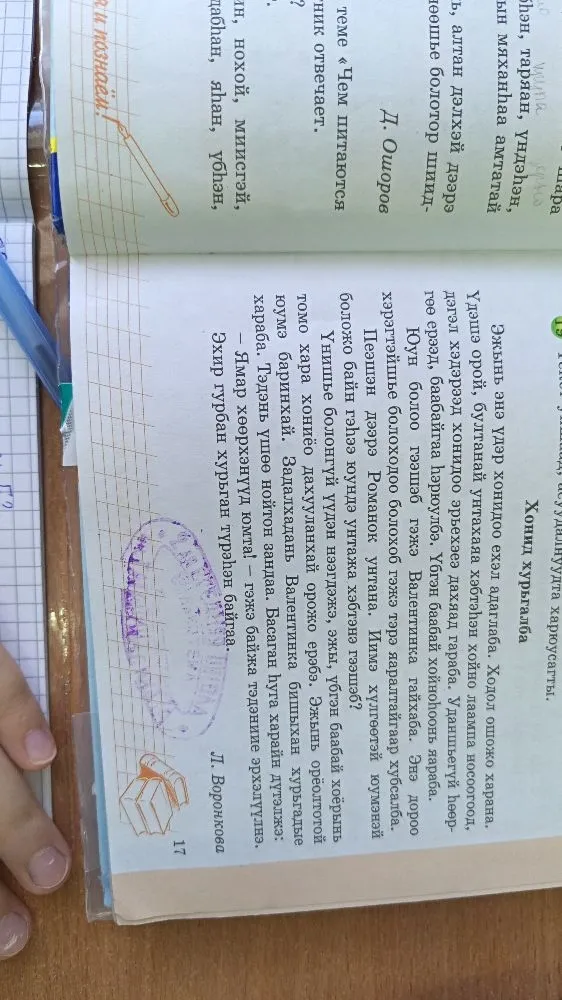 шара
ҺЭН, таряан, үндэһэн,
ын мяханһаа амтатай
ь, алтан дэлхэй дээрэ
нөөшье болотор шиид-
Д. Ошоров
теме «Чем питаются
?
тник отвечает.
ин, нохой, миисгэй,
дабһан, яһан, үбһэн,
и познаём!
асуудалнуудта харюусагты.
Хонид хурьгалба
Эжынь энэ үдэр хонидоо ехэл адаглаба. Ходол ошожо харана.
Үдэшэ орой, бултанай унтахаяа хэбтэһэн хойно лаампа носоогоод,
дэгэл хэдэрээд хонидоо эрьехэеэ дахяад гараба. Уданшьегүй һөөр-
гөө ерээд, баабайгаа һэрюулбэ. Үбгэн баабай хойноһоонь яараба.
Юун болоо гээшэб гэжэ Валентинка гайхаба. Энэ дороо
хэрэгтэйшье болоходоо болохоб гэжэ тэрэ яаралтайгаар хубсалба.
Пеэшэн дээрэ Романок унтана. Иимэ хүлгөөтэй юумэнэй
боложо байн гэһээ юундэ унтажа хэбтэнэ гээшэб?
Үнишье болонгүй үүдэн нээгдэжэ, эжы, үбгэн баабай хоёрынь
томо хара хониёо дахууланхай орожо ерэбэ. Эжынь орёолтотой
юумэ баринхай. Задалхадань Валентинка бишыхан хурьгадые
хараба. Тэдэнь үшөө нойтон зандаа. Басаган һуга харайн дүтэлжэ:
– Ямар хөөрхэнүүд юмта! – гэжэ байжа тэдэниие эрхэлүүлнэ.
Эхир гурбан хурьган түрэһэн байгаа.
Л. Воронкова
17